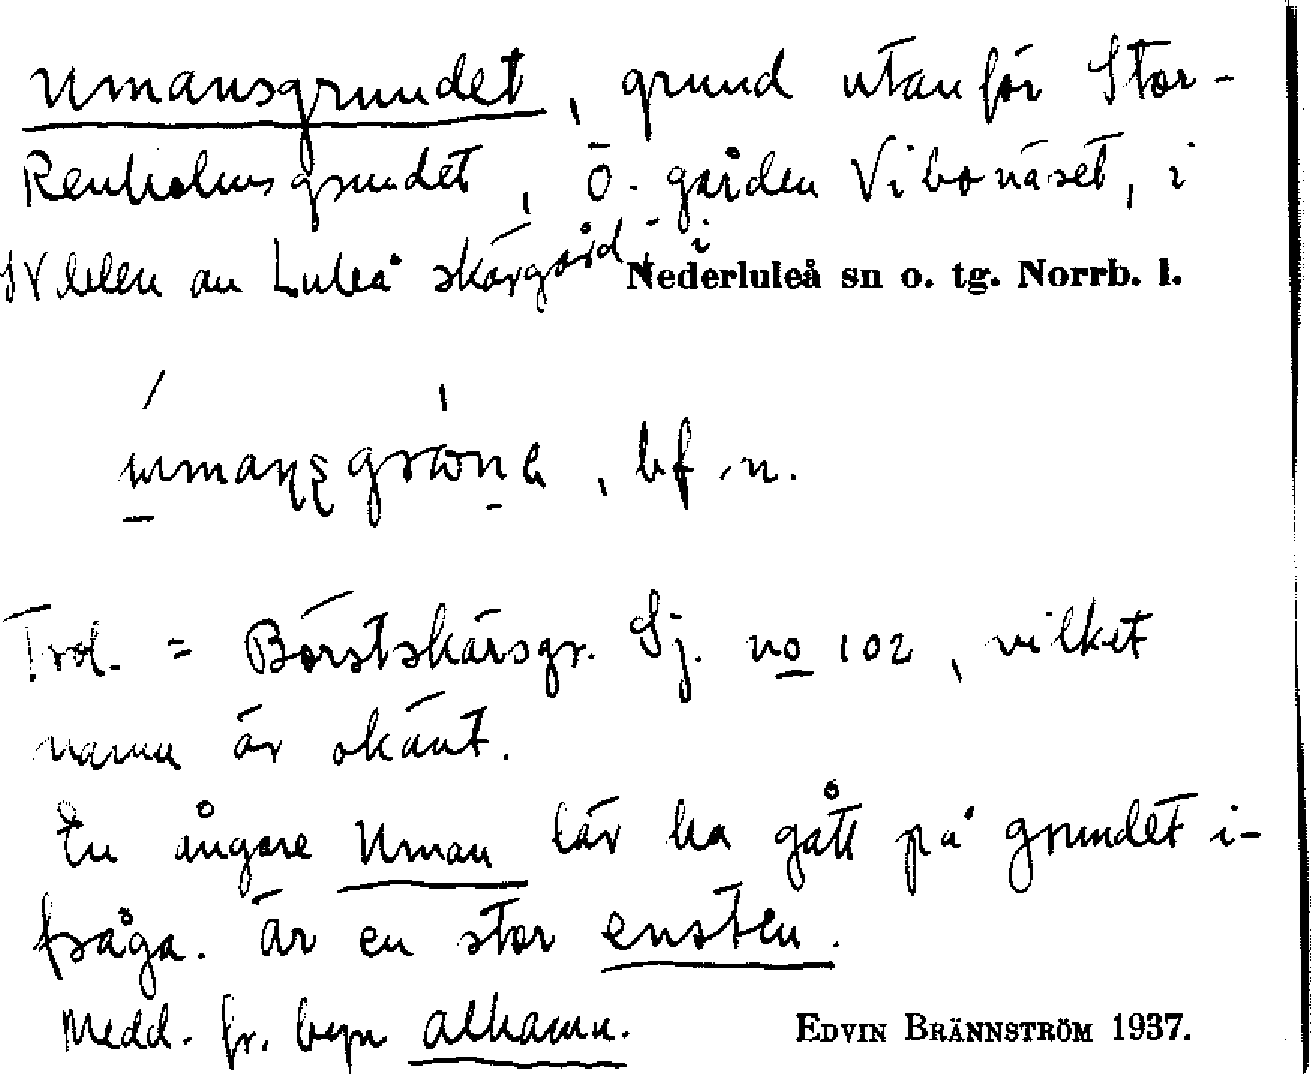 Umansgrundet, grund utanför Stor-
Renholmsgrundet, Ö. gården Vibonäset, i
SV delen av Luleå skärgård, i Nederluleå sn o. tg. Norrb. l.
bf. n.
Trol. = Börstskärsgr. Sj. no 102, vilket
namn är okänt.
En ångare Uman lär ha gått på grundet i-
fråga. Är en stor ensten.
Medd. fr. byn alhamn. EDVIN BRÄNNSTRÖM 1937.